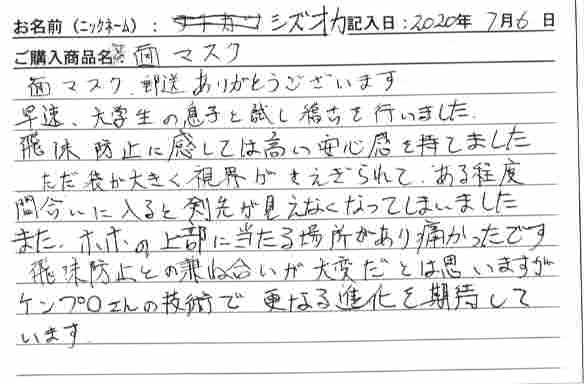 お名前(ニックネーム): シズオカ記入日:2020年 7月6日
ご購入商品名 面マスク
面マスク 郵送ありがとうございます
早速、大学生の息子と試し稽古を行いました.
飛沫防止に感しては高い安心感を持てました
ただ袋が大きく視界がさえぎられて、ある程度
間合いに入ると剣先が見えなくなってしまいました
また、ホホの上部に当たる場所があり痛かったです
飛沫防止との兼ね合いが大変だとは思いますが
ケンプロさんの技術で更なる進化を期待して
います.